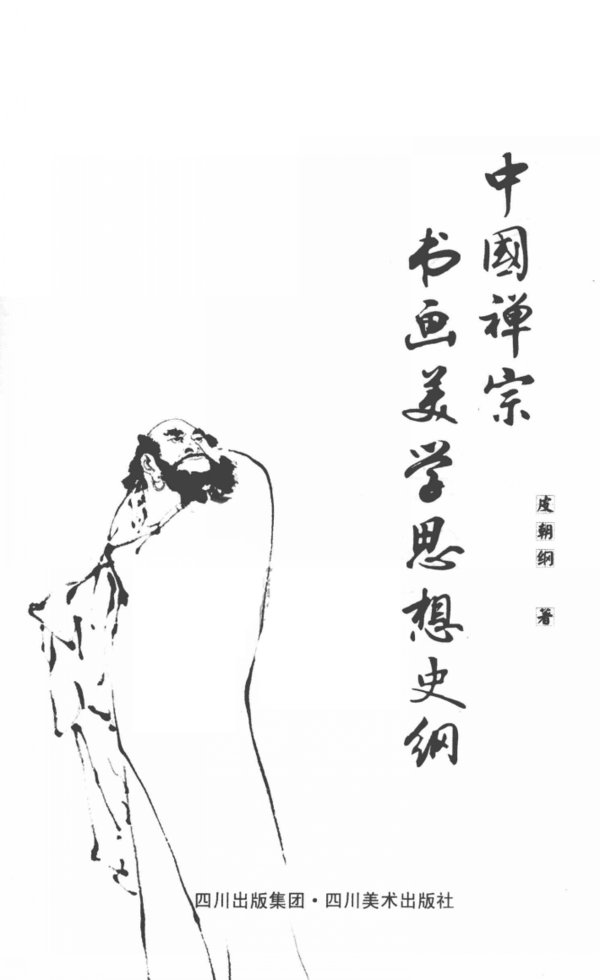 中國禅宗
书画美学思想史纲
皮朝纲 著
四川出版集团·四川美术出版社